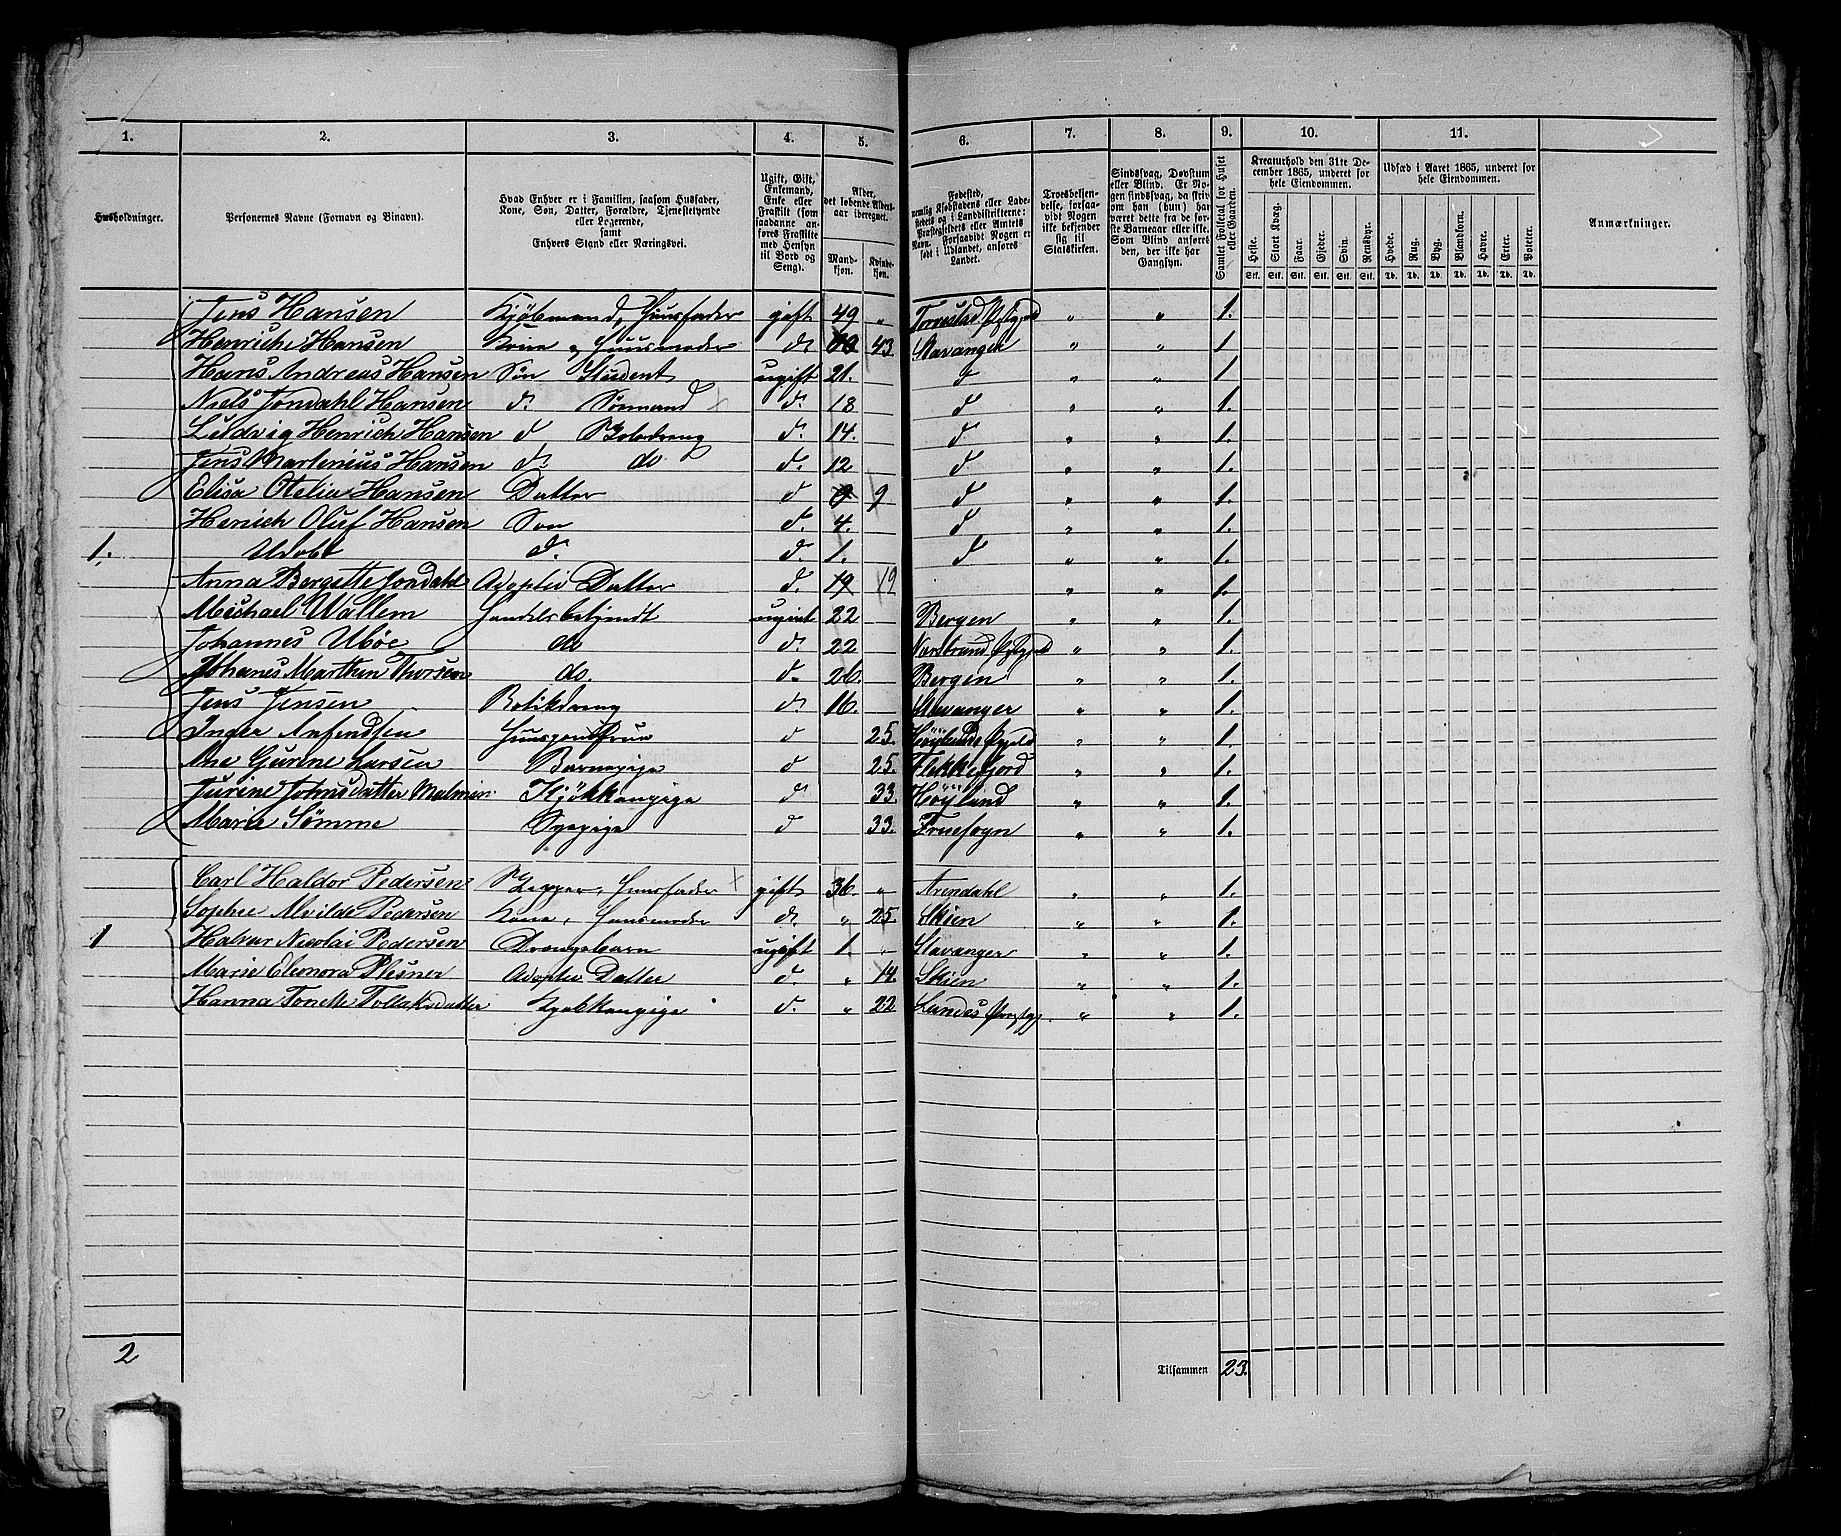 1. 2. 3. 4. 5. 6. 7. 8. 9. 10. 11.
Husholdninger.
Personernes Navne (Fornavn og Binavn).
Hvad Enhver er i Familien, saasom Husfader, Kone, Søn, Datter, Forældre, Tjenestetyende eller Logerende, samt Enhvers Stand eller Næringsvei.
Ugift, Gift, Enkemand, Enke eller Fraskilt (som saadanne anføres Fraskilte med Hensyn til Bord og Seng).
Alder, det løbende Aldersaar iberegnet.
Mandkjøn. Kvindekjøn.
Fødested, nemlig Kjøbstadens eller Ladestedets og i Landdistrikterne: Præstegjeldets eller Amtets Navn. Forsaavidt Nogen er født i Udlandet, anføres Landet.
Troesbekjendelse, forsaavidt Nogen ikke bekjender sig til Statskirken.
Sindssvag, Døvstum eller Blind. Er Nogen sindssvag, da skrives om han (hun) har været dette fra de første Barneaar eller ikke. Som Blind anføres den, der ikke har Gangsyn.
Samlet Folketal for Huset eller Gaarden.
Kreaturhold den 31te December 1865, underet for hele Eiendommen.
Heste. Stort Kvæg. Faar. Gjeder. Svin. Rensdyr.
Stk. Stk. Stk. Stk. Stk. Stk.
Udsæd i Aaret 1865, underet for hele Eiendommen.
Hvede. Rug. Byg. Blandkorn. Havre. Erter. Poteter.
Td. Td. Td. Td. Td. Td. Td.
Anmærkninger.
Jens Hansen Kjøbmand, Huusfader gift 49 „ Torvestad Præstegjeld „ „ 1.
Henriche Hansen Kone og Huusmoder d. 43 Stavanger „ „ 1
Hans Andreas Hansen Søn Student ugift 21. d „ „ 1
Niels Jondahl Hansen d. Sømand d. 18 d „ „ 1.
Ludvig Henrich Hansen d Skoledreng d. 14. d „ „ 1.
Jens Martinius Hansen d. do d. 12 d. „ „ 1.
Elisa Otelia Hansen Datter d 9 9 d „ „ 1.
Henich Oluf Hansen Søn d. 4. d „ „ 1.
1. Udøbt d. d. 1. d „ „ 1.
Anna Bergette Jondahl Adoptiv Datter d. 19 „ „ 1.
Michael Wallem Handelsbetjendt ugivt 22 Bergen „ „ 1.
Johannes Ubøe do d. 22 „ „ 1.
Johanes Marthin Thorsen do. d. 26. Bergen „ „ 1.
Jens Jensen Butikdreng d. 16. Stavanger „ „ 1.
Inger Anfindsen d 25. „ „ 1.
Ane Gurine Larsen Barnepige d 25. Flekkefjord „ „ 1.
Jurine Johnsdatter Malmin Kjøkkenpige d. 33. Høyland „ „ 1.
Marie Sømme Sypige d 33. Fruesogn „ „ 1.
Carl Haldor Pedersen Skipper, Huusfader gift 36 „ Arendahl „ „ 1.
Sophie Alvilde Pedersen Kone, Huusmoder d. „ 25. Skien „ „ 1.
1 Nicolai Pedersen Drengebarn ugift 1. „ Stavanger „ „ 1.
Marie Eleonora Plesner Adoptiv Datter d. „ 14. Skien „ „ 1.
Hanna Tonette Tollaksdatter Kjøkkenpige d. „ 22 Lundes Præstgj. „ „ 1.
2 Tilsammen 23.